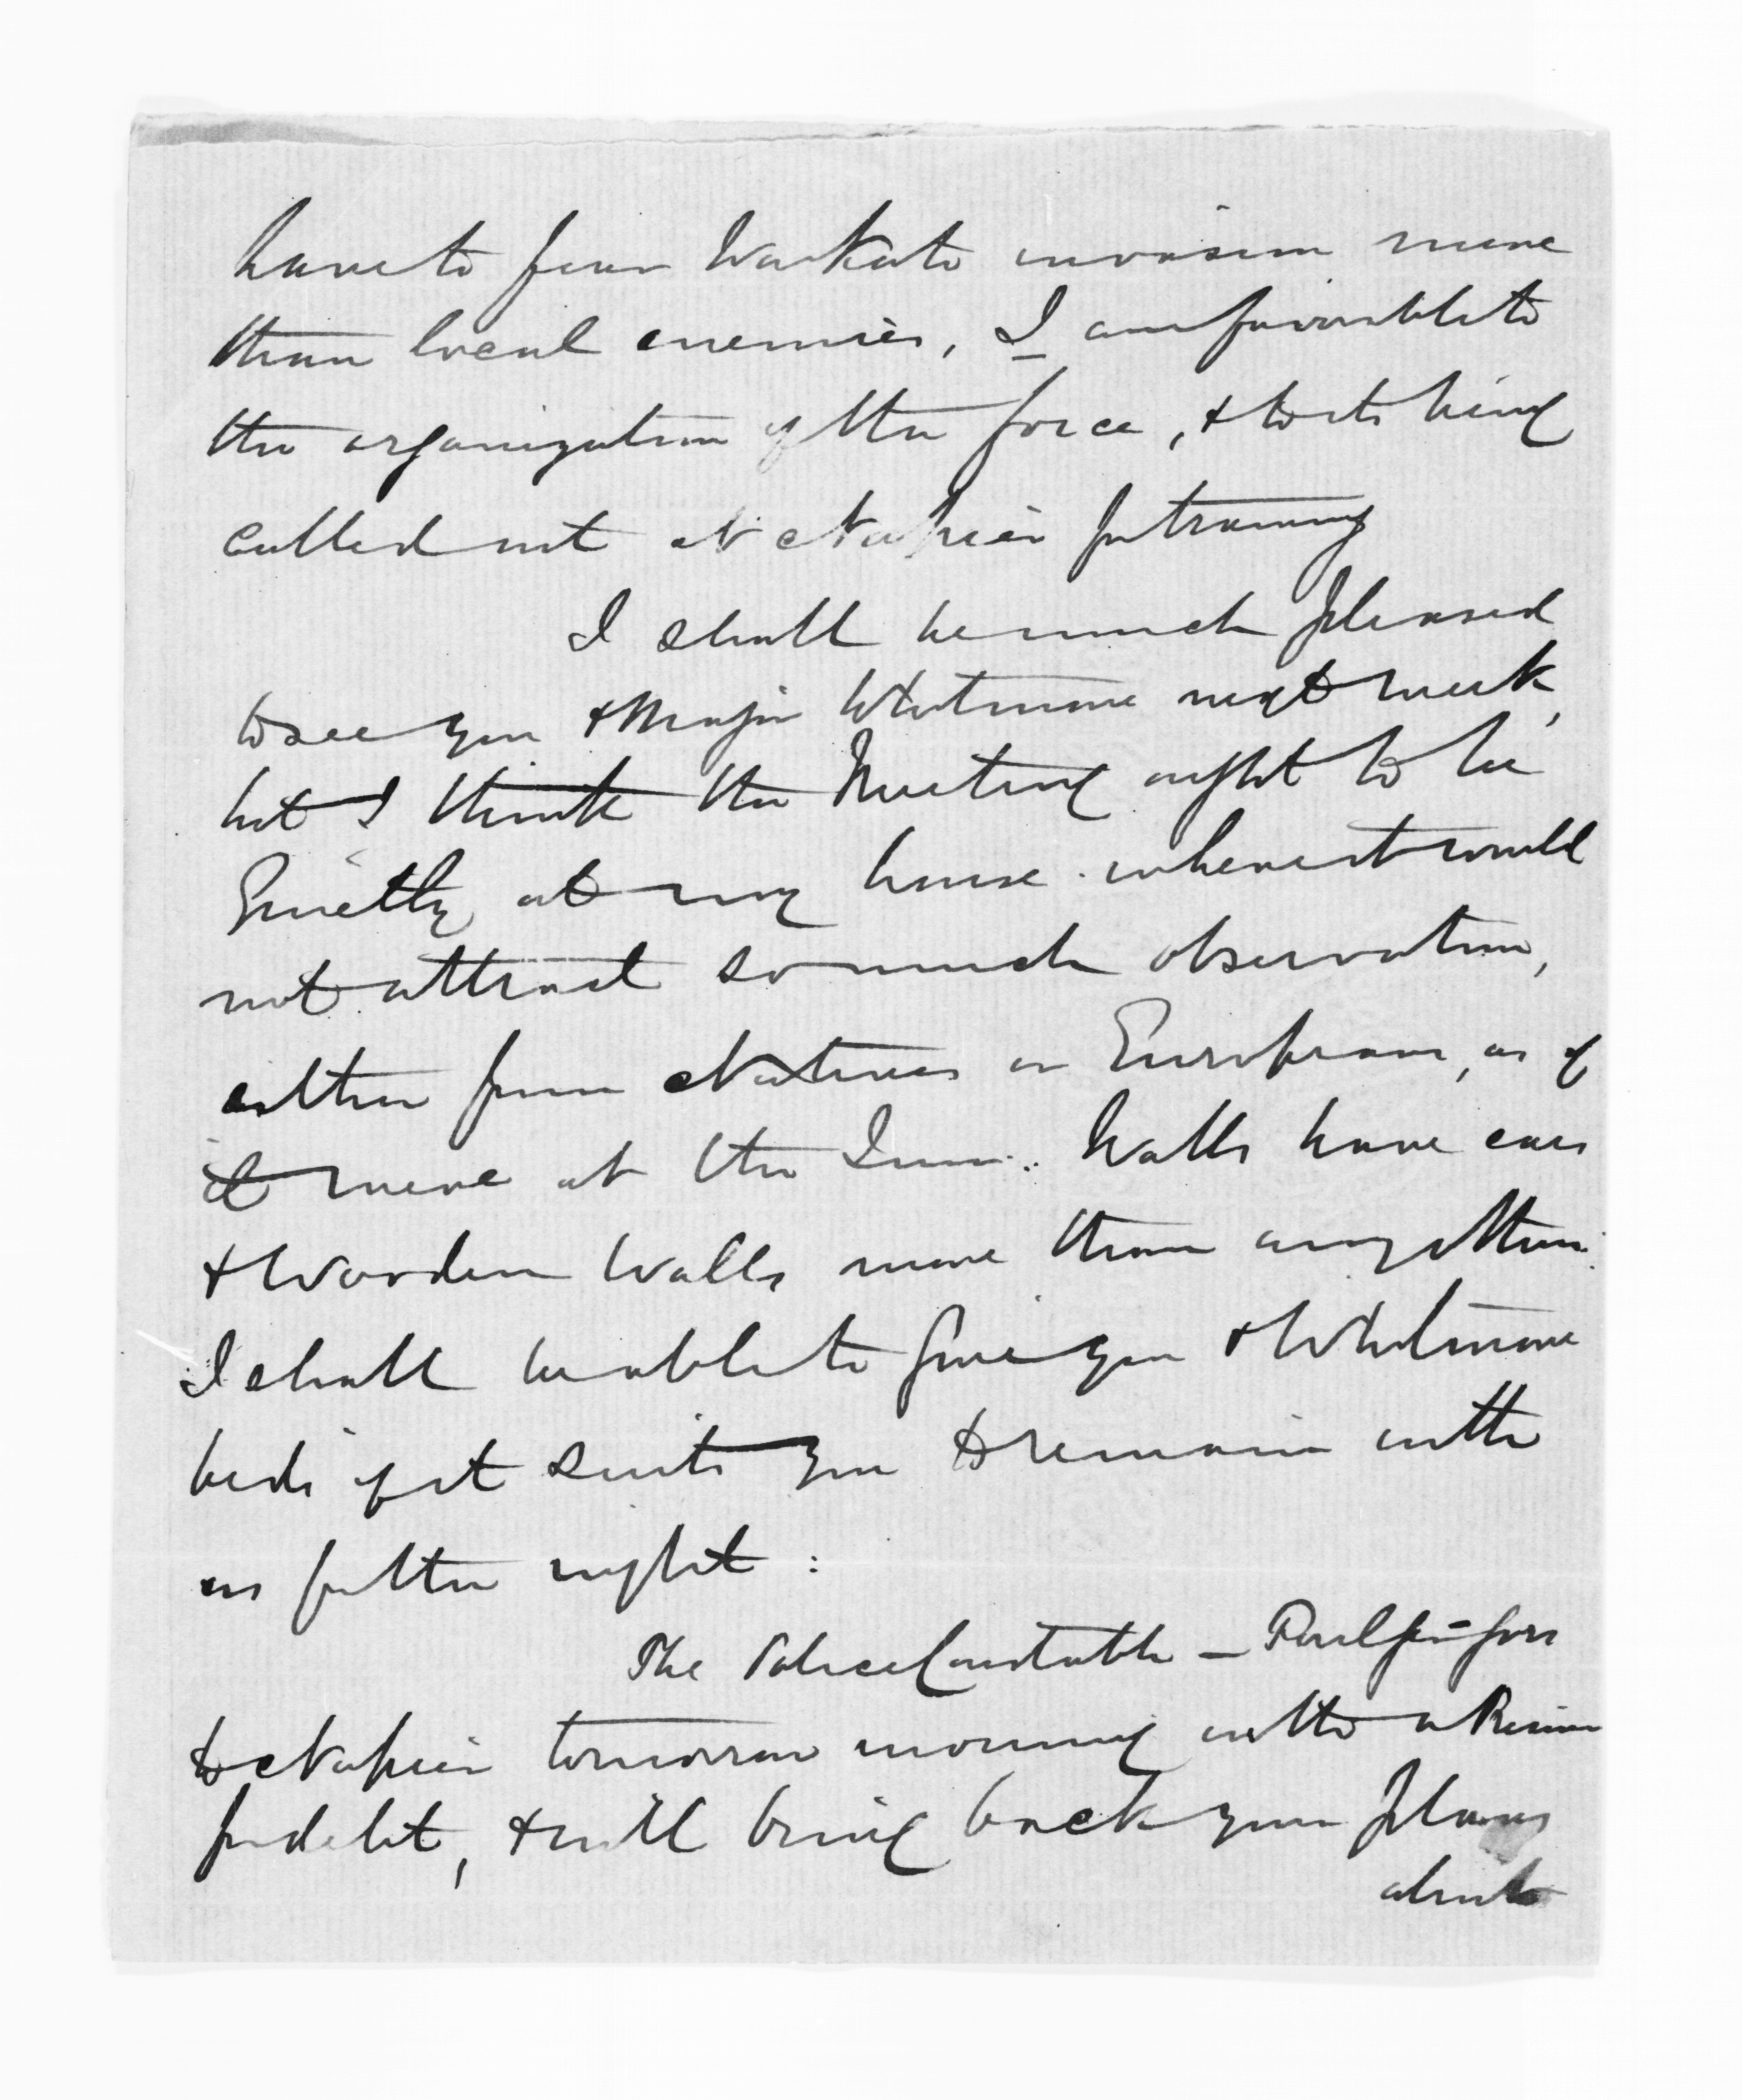 have to fear Waikato invasion more
than local enemies, I am favorable to
the organization of the force, & to its being
called out at Napier for training
I shall be much pleased
to see you & Major Whitmore next week,
but I think the Meeting ought to be
Quietly at my house. where it would
not attract so much observation,
either from Natives or Europeans, as if
it were at the Inn. Walls have ears
& Wooden Walls more than any other.
I shall be able to give you & Whitmore
beds if it suits you to remain with
us for the night:
The Police Constable — goes
to Napier tomorrow morning with a
for debt, & will bring back your plans
about